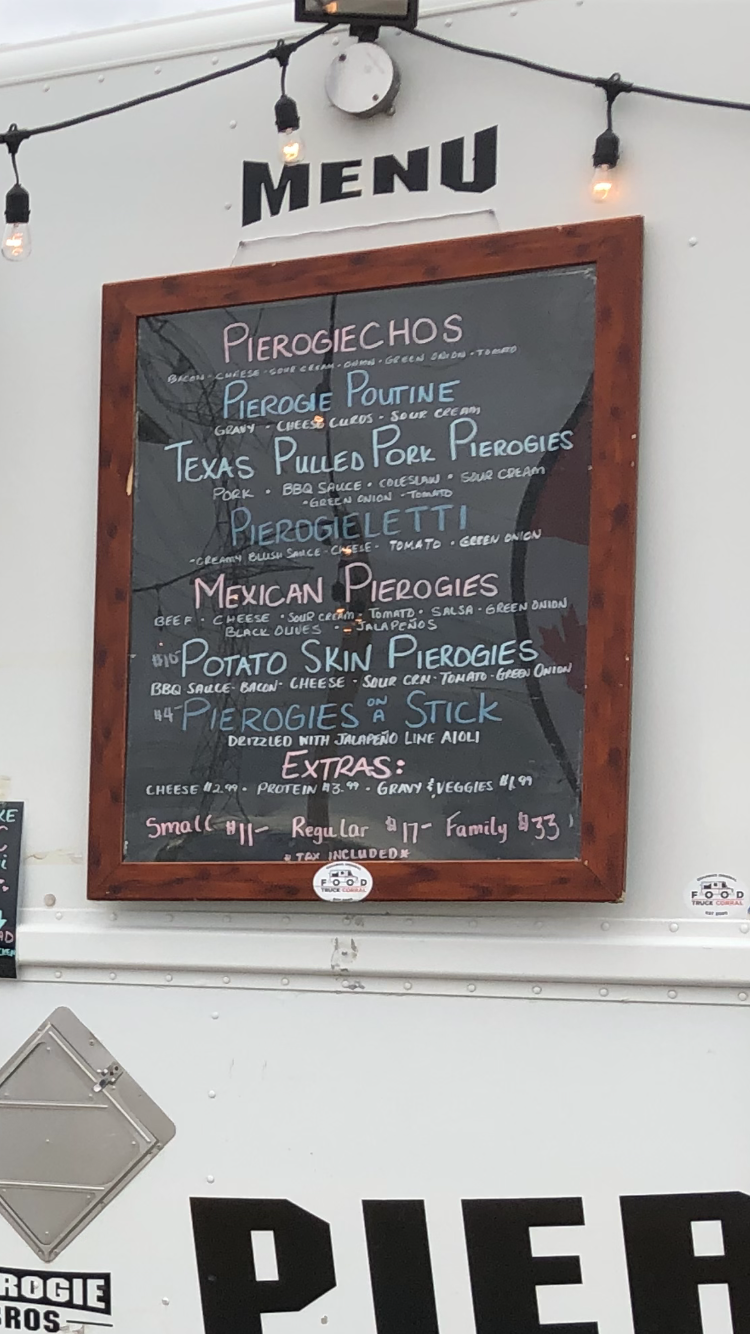 MENU
PIEROGIECHOS
BACON - CHEESE - SOUR CREAM - ONION - GREEN ONION - TOMATO
PIEROGIE POUTINE
GRAVY - CHEESE CURDS - SOUR CREAM
TEXAS PULLED PORK PIEROGIES
PORK • BBQ SAUCE • COLESLAW • SOUR CREAM
- GREEN ONION - TOMATO
PIEROGIELETTI
- CREAMY BLUSH SAUCE - CHEESE - TOMATO • GREEN ONION
MEXICAN PIEROGIES
BEEF • CHEESE • SOUR CREAM - TOMATO • SALSA - GREEN ONION
BLACK OLIVES - JALAPEÑOS
$10 POTATO SKIN PIEROGIES
BBQ SAUCE - BACON - CHEESE - SOUR CRM - TOMATO - GREEN ONION
$4 PIEROGIES ON A STICK
DRIZZLED WITH JALAPEÑO LIME AIOLI
EXTRAS:
CHEESE $2.99 • PROTEIN $3.99 • GRAVY & VEGGIES $1.99
Small $11- Regular $17- Family $33
* TAX INCLUDED *
FOOD
TRUCK CORRAL
FOOD
TRUCK CORRAL
PIER
ROGIE
BROS